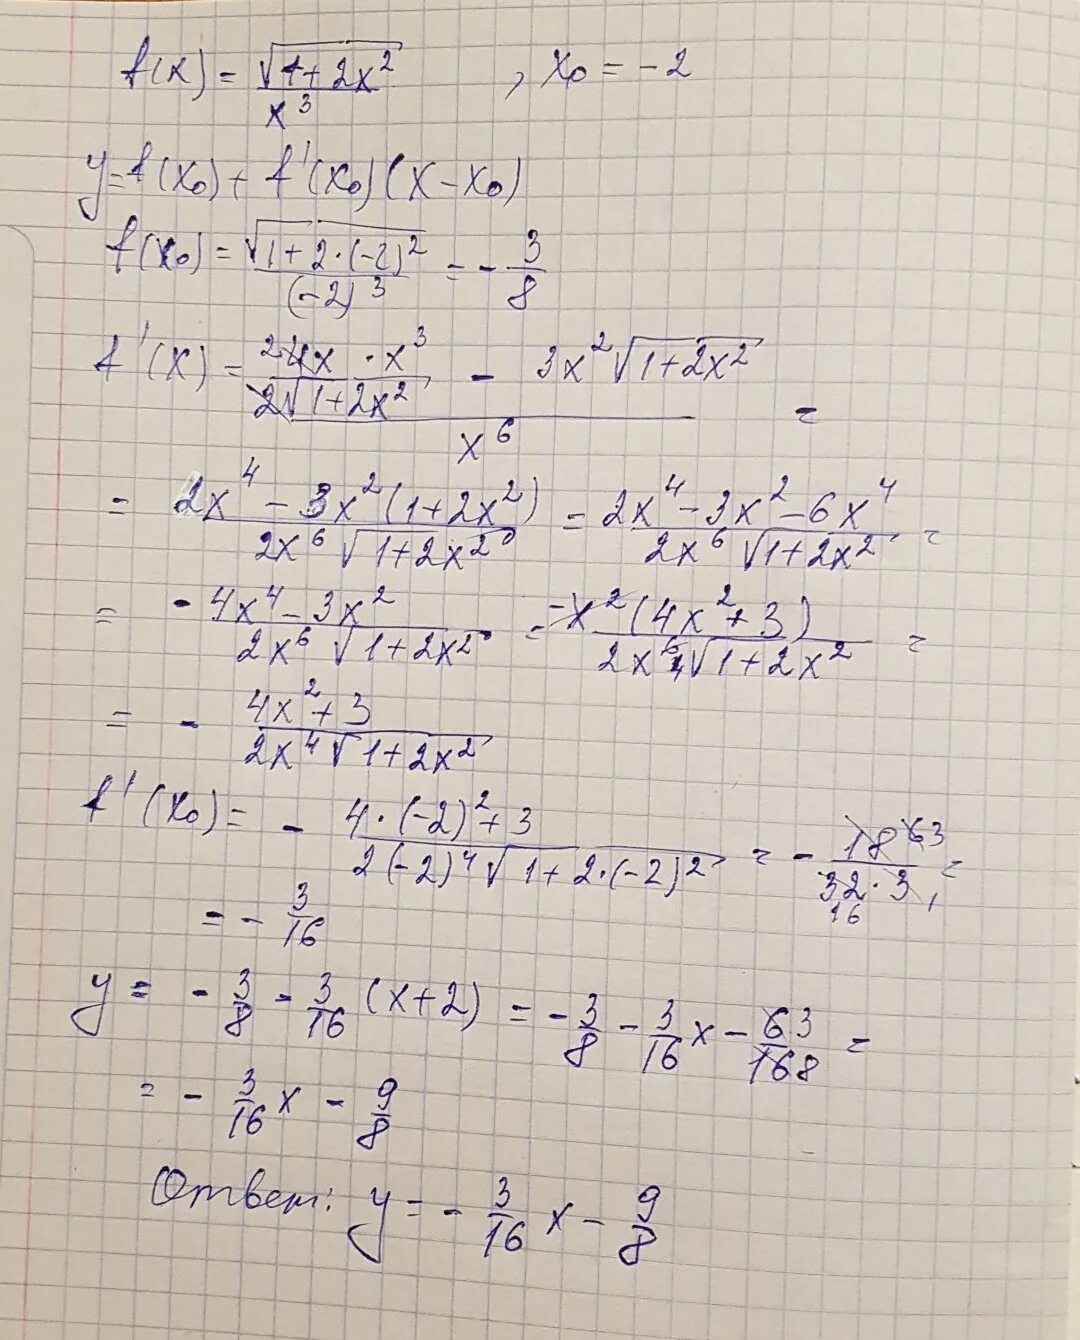 f(x) = √(1+2x²)/x³ , x₀ = -2
y = f(x₀) + f'(x₀)(x-x₀)
f(x₀) = √(1+2·(-2)²)/(-2)³ = - 3/8
f'(x) = (4x/(2√(1+2x²)) · x³ - 3x²√(1+2x²))/x⁶ =
= (2x⁴ - 3x²(1+2x²))/(2x⁶√(1+2x²)) = (2x⁴-3x²-6x⁴)/(2x⁶√(1+2x²)) =
= (-4x⁴-3x²)/(2x⁶√(1+2x²)) = -x²(4x²+3)/(2x⁶√(1+2x²)) =
= - (4x²+3)/(2x⁴√(1+2x²))
f'(x₀) = - (4·(-2)²+3)/(2(-2)⁴√(1+2·(-2)²)) = - 18/(32·3) =
= - 3/16
y = - 3/8 - 3/16 (x+2) = - 3/8 - 3/16 x - 6/16 =
= - 3/16 x - 9/8
Ответ: y = - 3/16 x - 9/8